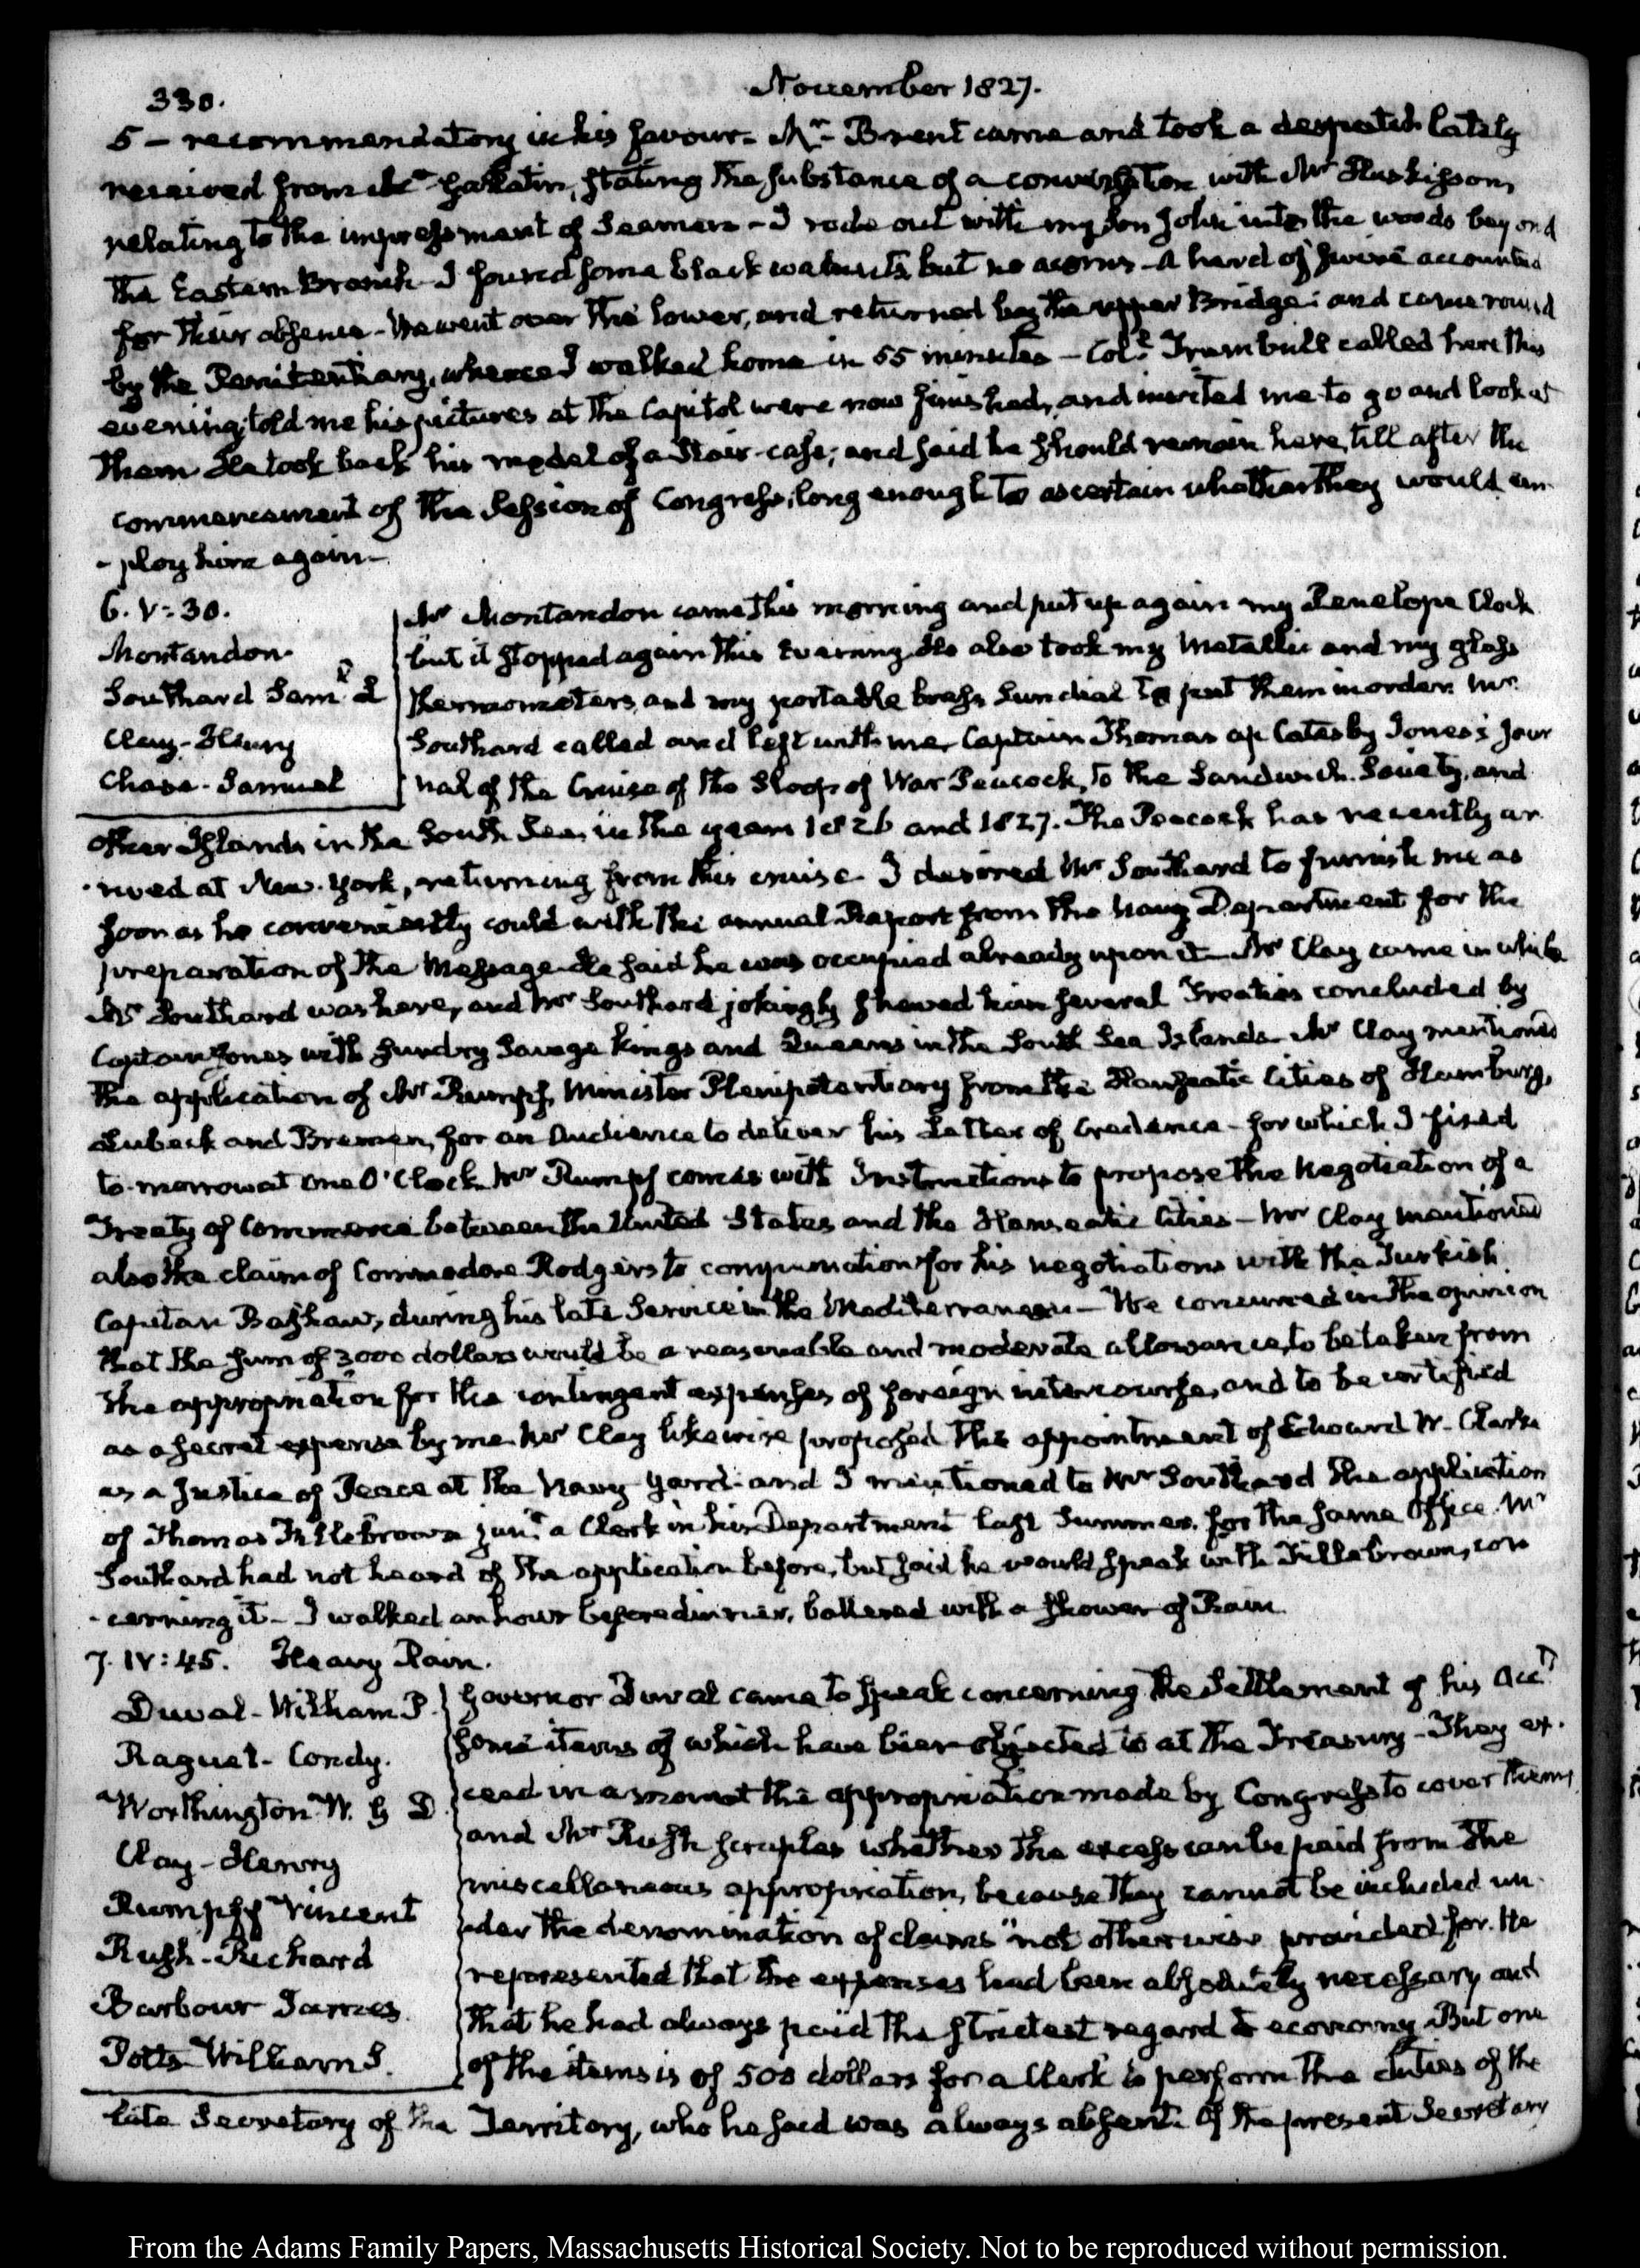 330.
November 1827.
5 — recommendatory in his favour. Mr. Brent came and took a despatch lately
received from Mr. Gallatin, stating the substance of a conversation with Mr Huskisson,
relating to the impressment of Seamen — I rode out with my Son John into the woods beyond
the Eastern Branch. I found some black walnuts but no acorns. A herd of swine accounted
for their absence. We went over the lower, and returned by the upper Bridge: and came round
by the Penitentiary, whence I walked home in 55 minutes — Coll. Trumbull called here this
evening; told me his pictures at the Capitol were now finished, and invited me to go and look at
them. He took back his model of a Stair-case; and said he should remain here till after the
commencement of the Session of Congress; long enough to ascertain whether they would em
-ploy him again—
6. V:30.
Montandon.
Southard Saml. L
Clay-Henry
Chase-Samuel
Mr Montandon came this morning and put up again my Penelope Clock
but it stopped again this Evening. He also took my Metallic and my glass
thermometers, and my portable brass Sun dial to put them in order. Mr
Southard called and left with me, Captain Thomas ap Catesby Jones's jour
nal of the Cruise of the Sloop of War Peacock, to the Sandwich, Society, and
other Islands in the South Sea, in the years 1826 and 1827. The Peacock has recently ar
-rived at New-York, returning from this cruise. I desired Mr Southard to furnish me as
soon as he conveniently could with the annual Report from the Navy Department for the
preparation of the Message. He said he was occupied already upon it. Mr Clay came in while
Mr Southard was here, and Mr Southard jokingly shewed him several Treaties concluded by
Captain Jones with sundry Savage Kings and Queens in the South Sea Islands. Mr Clay mentioned
the application of Mr Rumpff, Minister Plenipotentiary from the Hanseatic Cities of Hamburg,
Lubeck and Bremen, for an Audience to deliver his Letter of Credence—for which I fixed
to-morrow at One O'Clock. Mr Rumpff comes with Instructions to propose the Negotiation of a
Treaty of Commerce between the United States and the Hanseatic Cities—Mr Clay mentioned
also the claim of Commodore Rodgers to compensation for his negotiations with the Turkish
Capitan Bashaw, during his late Service in the Mediterranean—We concurred in the opinion
that the sum of 3000 dollars would be a reasonable and moderate allowance, to be taken from
the appropriation for the contingent expenses of foreign intercourse, and to be certified
as a secret expense by me. Mr Clay likewise proposed the appointment of Edward W. Clarke
as a Justice of Peace at the Navy Yard. and I mentioned to Mr Southard the application
of Thomas Fillebrown junr. a Clerk in his Department last Summer, for the same Office. Mr
Southard had not heard of the application before, but said he would speak with Fillebrown, con
-cerning it—I walked an hour before dinner, with a shower of Rain.
7. IV:45. Heavy Rain.
Duval-William P.
Raguet-Condy.
Worthington W. G D.
Clay-Henry
Rumpff Vincent
Rush-Richard
Barbour James.
Potts William S.
Governor Duval came to speak concerning the Settlement of his Acct.
some items of which have been objected to at the Treasury—They ex-
ceed in amount the appropriation made by Congress to cover them,
and Mr Rush scruples whether the excess can be paid from the
miscellaneous appropriation, because they cannot be included un-
der the denomination of claims "not otherwise provided for. He
represented that the expenses had been absolutely necessary and
that he had always paid the strictest regard to economy. But one
of the items is of 500 dollars for a Clerk to perform the duties of the
late Secretary of the Territory, who he said was always absent. Of the present Secretary
From the Adams Family Papers, Massachusetts Historical Society. Not to be reproduced without permission.